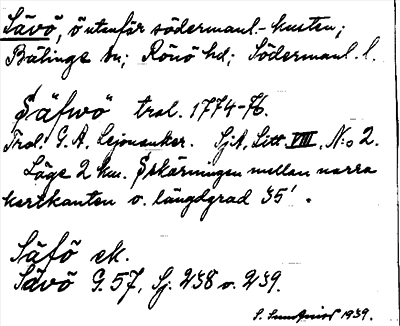 Sävö, ö utanför södermanl.-kusten;
Bälinge sn; Rönö hd; Södermanl. l.
Säfwö trol. 1774-76.
Trol. G. A. Lejonanker. SjA, Litt VIII, N:o 2.
Läge 2 km. S skärningen mellan norra
kartkanten o. längdgrad 35'.
Säfö ek.
Sävö G. 57, Sj. 238 o. 239.
S. 1939.